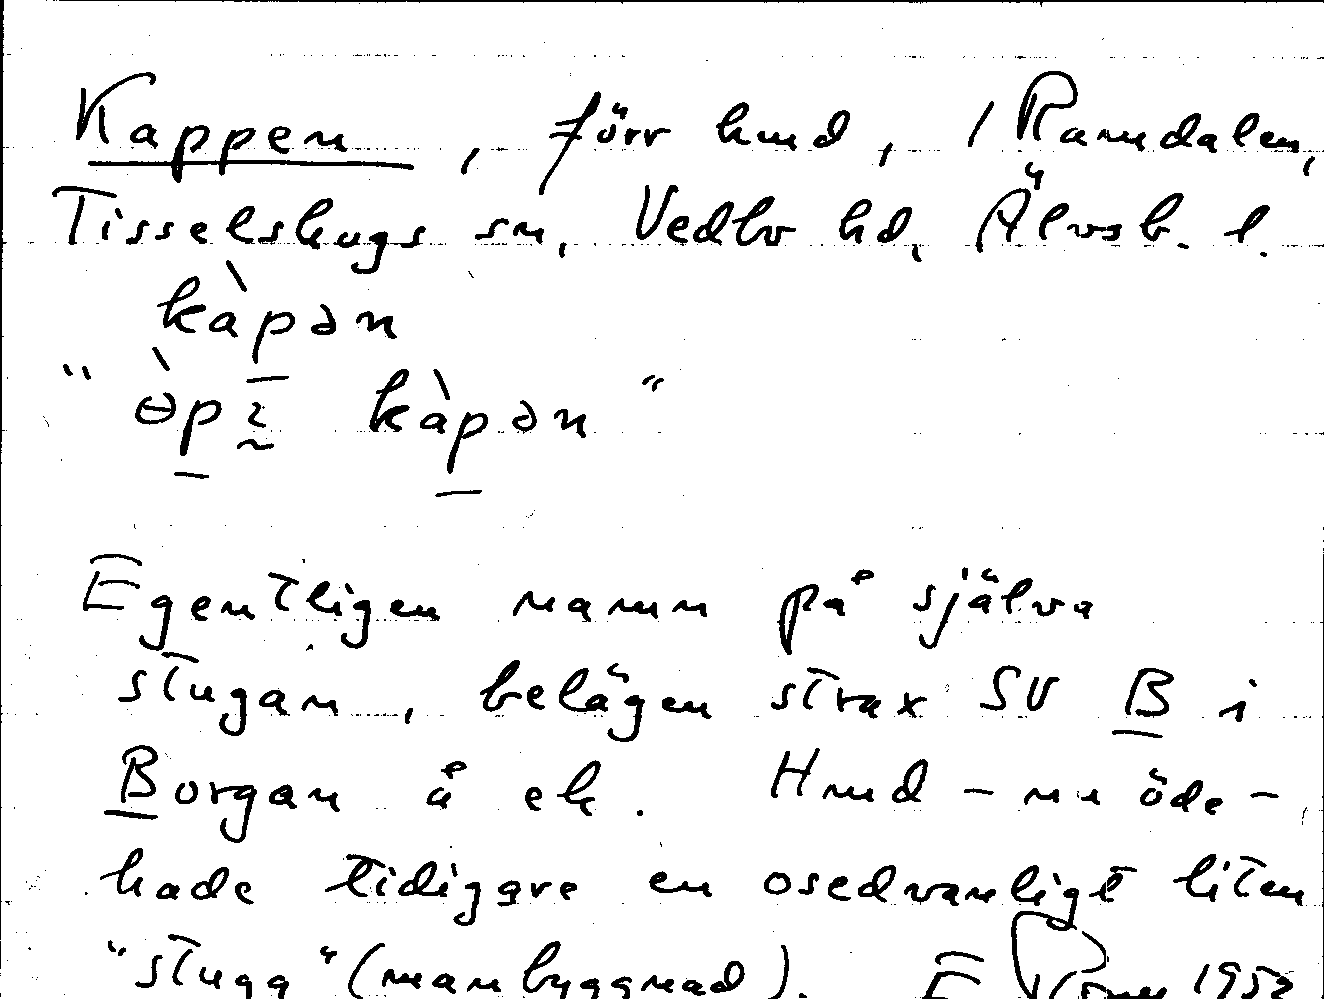 Kappen, förr hmd, / Ramdalen,
Tisselskogs sn, Vedbo hd, Älvsb. l.
kàpən
"òpɪ kàpən"
Egentligen namn på själva
stugan, belägen strax SV B i
Borgan å ek. Hmd - nu öde -
hade tidigare en osedvanligt liten
"stugg" (manbyggnad). E 1952